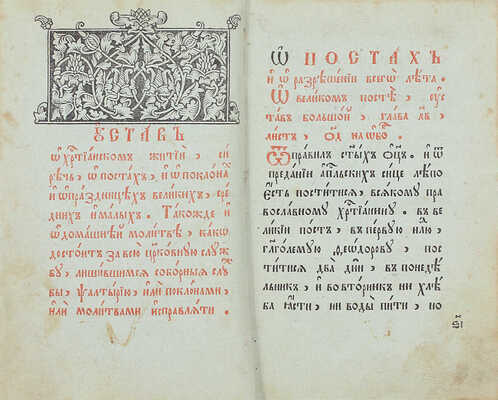 ОУСТАВЪ
ѡ҆ хрⷭ҇тїѧнскомъ житїи̑, си
рѣчь, ѡ҆ постахъ, и҆ ѡ҆ поклона
и҆ ѡ҆ праздницѣхъ великихъ, сре
днихъ и҆ малыхъ. Такожде и҆
ѡ҆ домашнѣй молитвѣ, какѡ
достоитъ за всю̀ цр҃ковную слꙋж
бꙋ, лишившимсѧ соборныѧ слꙋ
бы, ѱалтырїю, и҆лѝ поклонами,
и҆лѝ молитвами и҆справлѧти.
Ѡ҆ ПОСТАХЪ
и҆ ѡ҆ разрѣшенїи всегѡ̀ лѣта.
Ѡ҆ великомъ постѣ, оу҆с
тавъ большой, глава
листъ,
Ѿ правилъ ст҃ыхъ ѻ҆ц҃ъ. и҆ ѿ
преданїѧ а҆пⷭ҇льскихъ сице лѣпо
є҆сть поститисѧ, всѧкомꙋ пра
вославномꙋ хрⷭ҇тїанинꙋ. въ ве
ликїи постъ, въ первꙋю недⷧ҇ю,
гл҃големꙋю ѳеѡдоровꙋ, пос
тити́сѧ два̀ дн҃и, въ понедѣ
льникъ, и҆ во вторникъ ни хлѣ
ба ꙗ҆сти, ни воды̀ пити, но